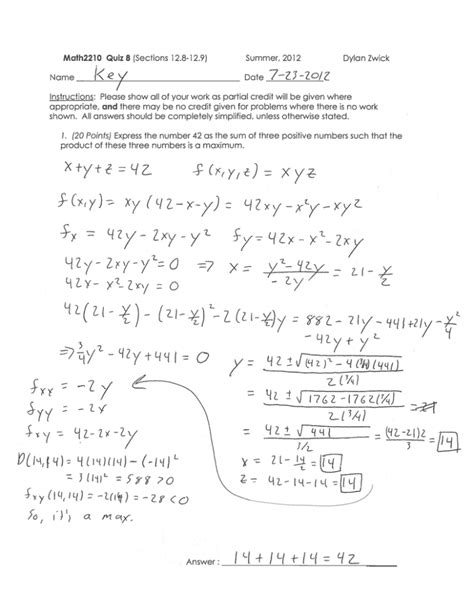 Math2210 Quiz 8 (Sections 12.8-12.9) Summer, 2012 Dylan Zwick
Name Key Date 7-23-2012
Instructions: Please show all of your work as partial credit will be given where
appropriate, and there may be no credit given for problems where there is no work
shown. All answers should be completely simplified, unless otherwise stated.
1. (20 Points) Express the number 42 as the sum of three positive numbers such that the
product of these three numbers is a maximum.
x+y+z=42 f(x,y,z) = xyz
f(x,y) = xy(42-x-y) = 42xy-x²y-xy²
fx = 42y-2xy-y² fy = 42x-x²-2xy
42y-2xy-y²=0 ⇒ x = (y²-42y)/(-2y) = 21-y/2
42x-x²-2xy=0
42(21-y/2)-(21-y/2)²-2(21-y/2)y = 882-21y-441+21y-y²/4
-42y+y²
⇒ 3/4y²-42y+441=0 y = (42±√((42)²-4(3/4)(441)))/(2(3/4))
fxx = -2y = (42±√(1762-1762(3/4)))/(2(3/4)) = 21
fyy = -2x
fxy = 42-2x-2y = (42±√441)/(3/2) = ((42-21)2)/3 = 14
D(14,14) = 4(14)(14)-(-14)² x = 21-14/2 = 14
= 3(14)² = 588>0 z = 42-14-14 = 14
fxy(14,14) = -2(14) = -28<0
So, it's a max.
Answer: 14+14+14=42